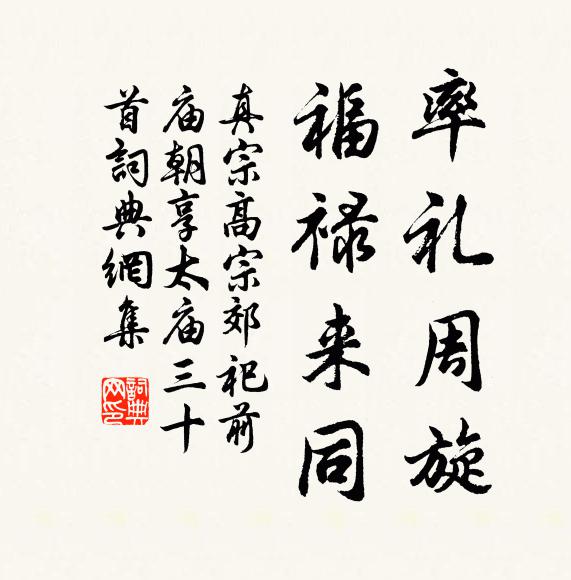 率礼周旋
福禄来同
真宗高宗郊祀前
庙朝享太庙三十
首詞典網集
詞典网印